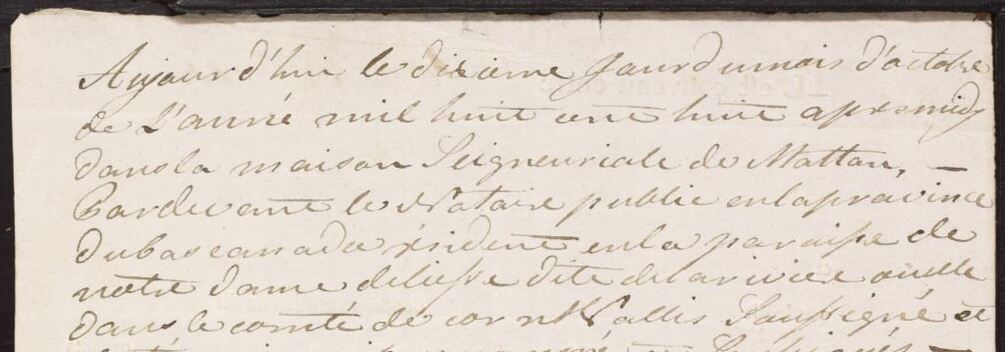 Aujourd'hui le dixieme Jour du mois d'octobre
de L'anné mil huit cent huit apres midy
dans la maison Seigneuriale de Mattan, —
Pardevant le Notaire public en la province
du bas canada résident en la paroisse de
notre Dame de liesse dite de la riviere ouelle
dans le comté de cornWallis Soussigné et